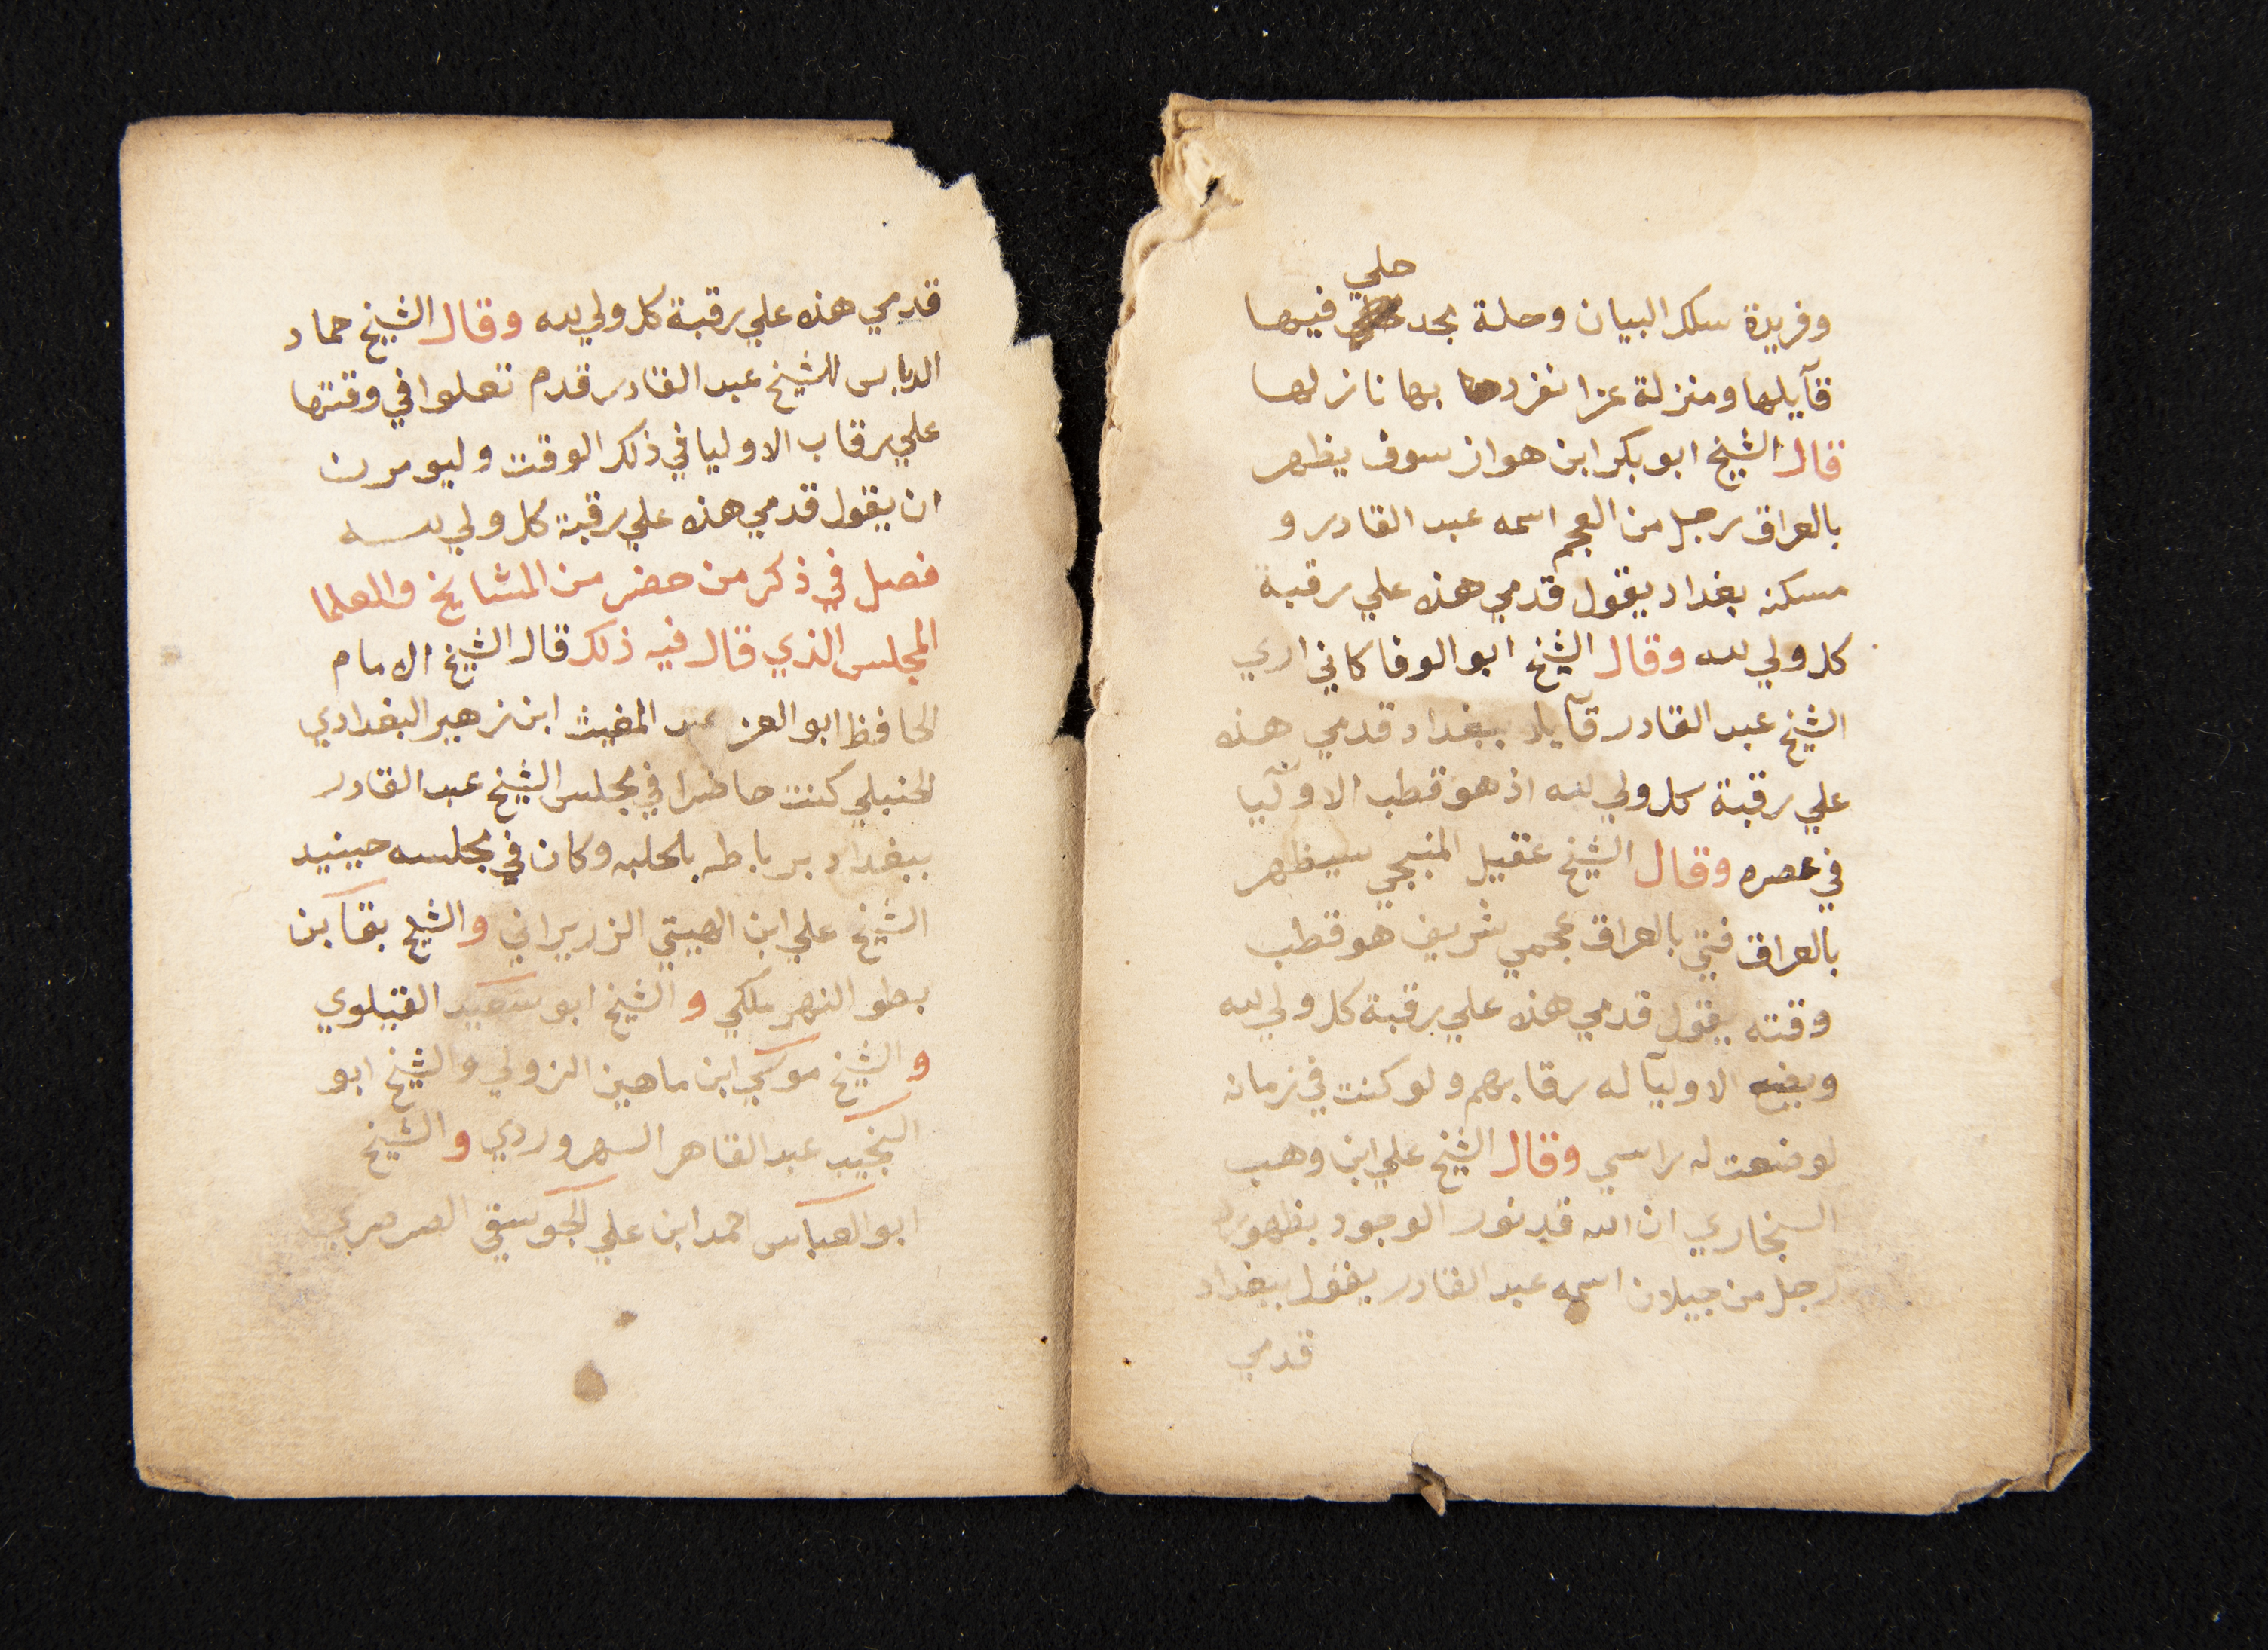 وفريدة سلك البيان وحلة بجد حلي فيها
قآيلها ومنزلة عزا نفرد بها نازلها
قال الشيخ ابو بكر ابن هواز سوف يظهر
بالعراق رجل من العجم اسمه عبد القادر و
مسكنه بغداد يقول قدمي هذه علي رقبة
كل ولي لله وقال الشيخ ابو الوفا كاني اري
الشيخ عبد القادر قآيلا ببغداد قدمي هذه
علي رقبة كل ولي لله اذ هو قطب الاوليآ
في عصره وقال الشيخ عقيل المنبجي سيظهر
بالعراق فتي بالعراق عجمي شريف هو قطب
وقته يقول قدمي هذه علي رقبة كل ولي لله
ويضع الاوليآ له رقابهم ولو كنت في زمانه
لوضعت له راسي وقال الشيخ علي ابن وهب
السنجاري ان الله قد نور الوجود بظهور
رجل من جيلان اسمه عبد القادر يقول ببغداد
قدمي
قدمي هذه علي رقبة كل ولي لله وقال الشيخ حماد
الدباس للشيخ عبد القادر قدم تعلوا في وقتها
علي رقاب الاوليا في ذلك الوقت وليومرن
ان يقول قدمي هذه علي رقبة كل ولي لله
فصل في ذكر من حضر من المشايخ والعلما
المجلس الذي قال فيه ذلك قال الشيخ الامام
الحافظ ابو العز عبد المغيث ابن زهير البغدادي
الحنبلي كنت حاضرا في مجلس الشيخ عبد القادر
ببغداد برباطه بالحلبه وكان في مجلسه حينيد
الشيخ علي ابن الهيتي الزريراني والشيخ بقآ بن
بطو النهر ملكي والشيخ ابو سعيد القيلوي
والشيخ موسي ابن ماهين الزولي والشيخ ابو
النجيب عبد القاهر السهروردي والشيخ
ابو العباس احمد ابن علي الجوسقي الصرصري